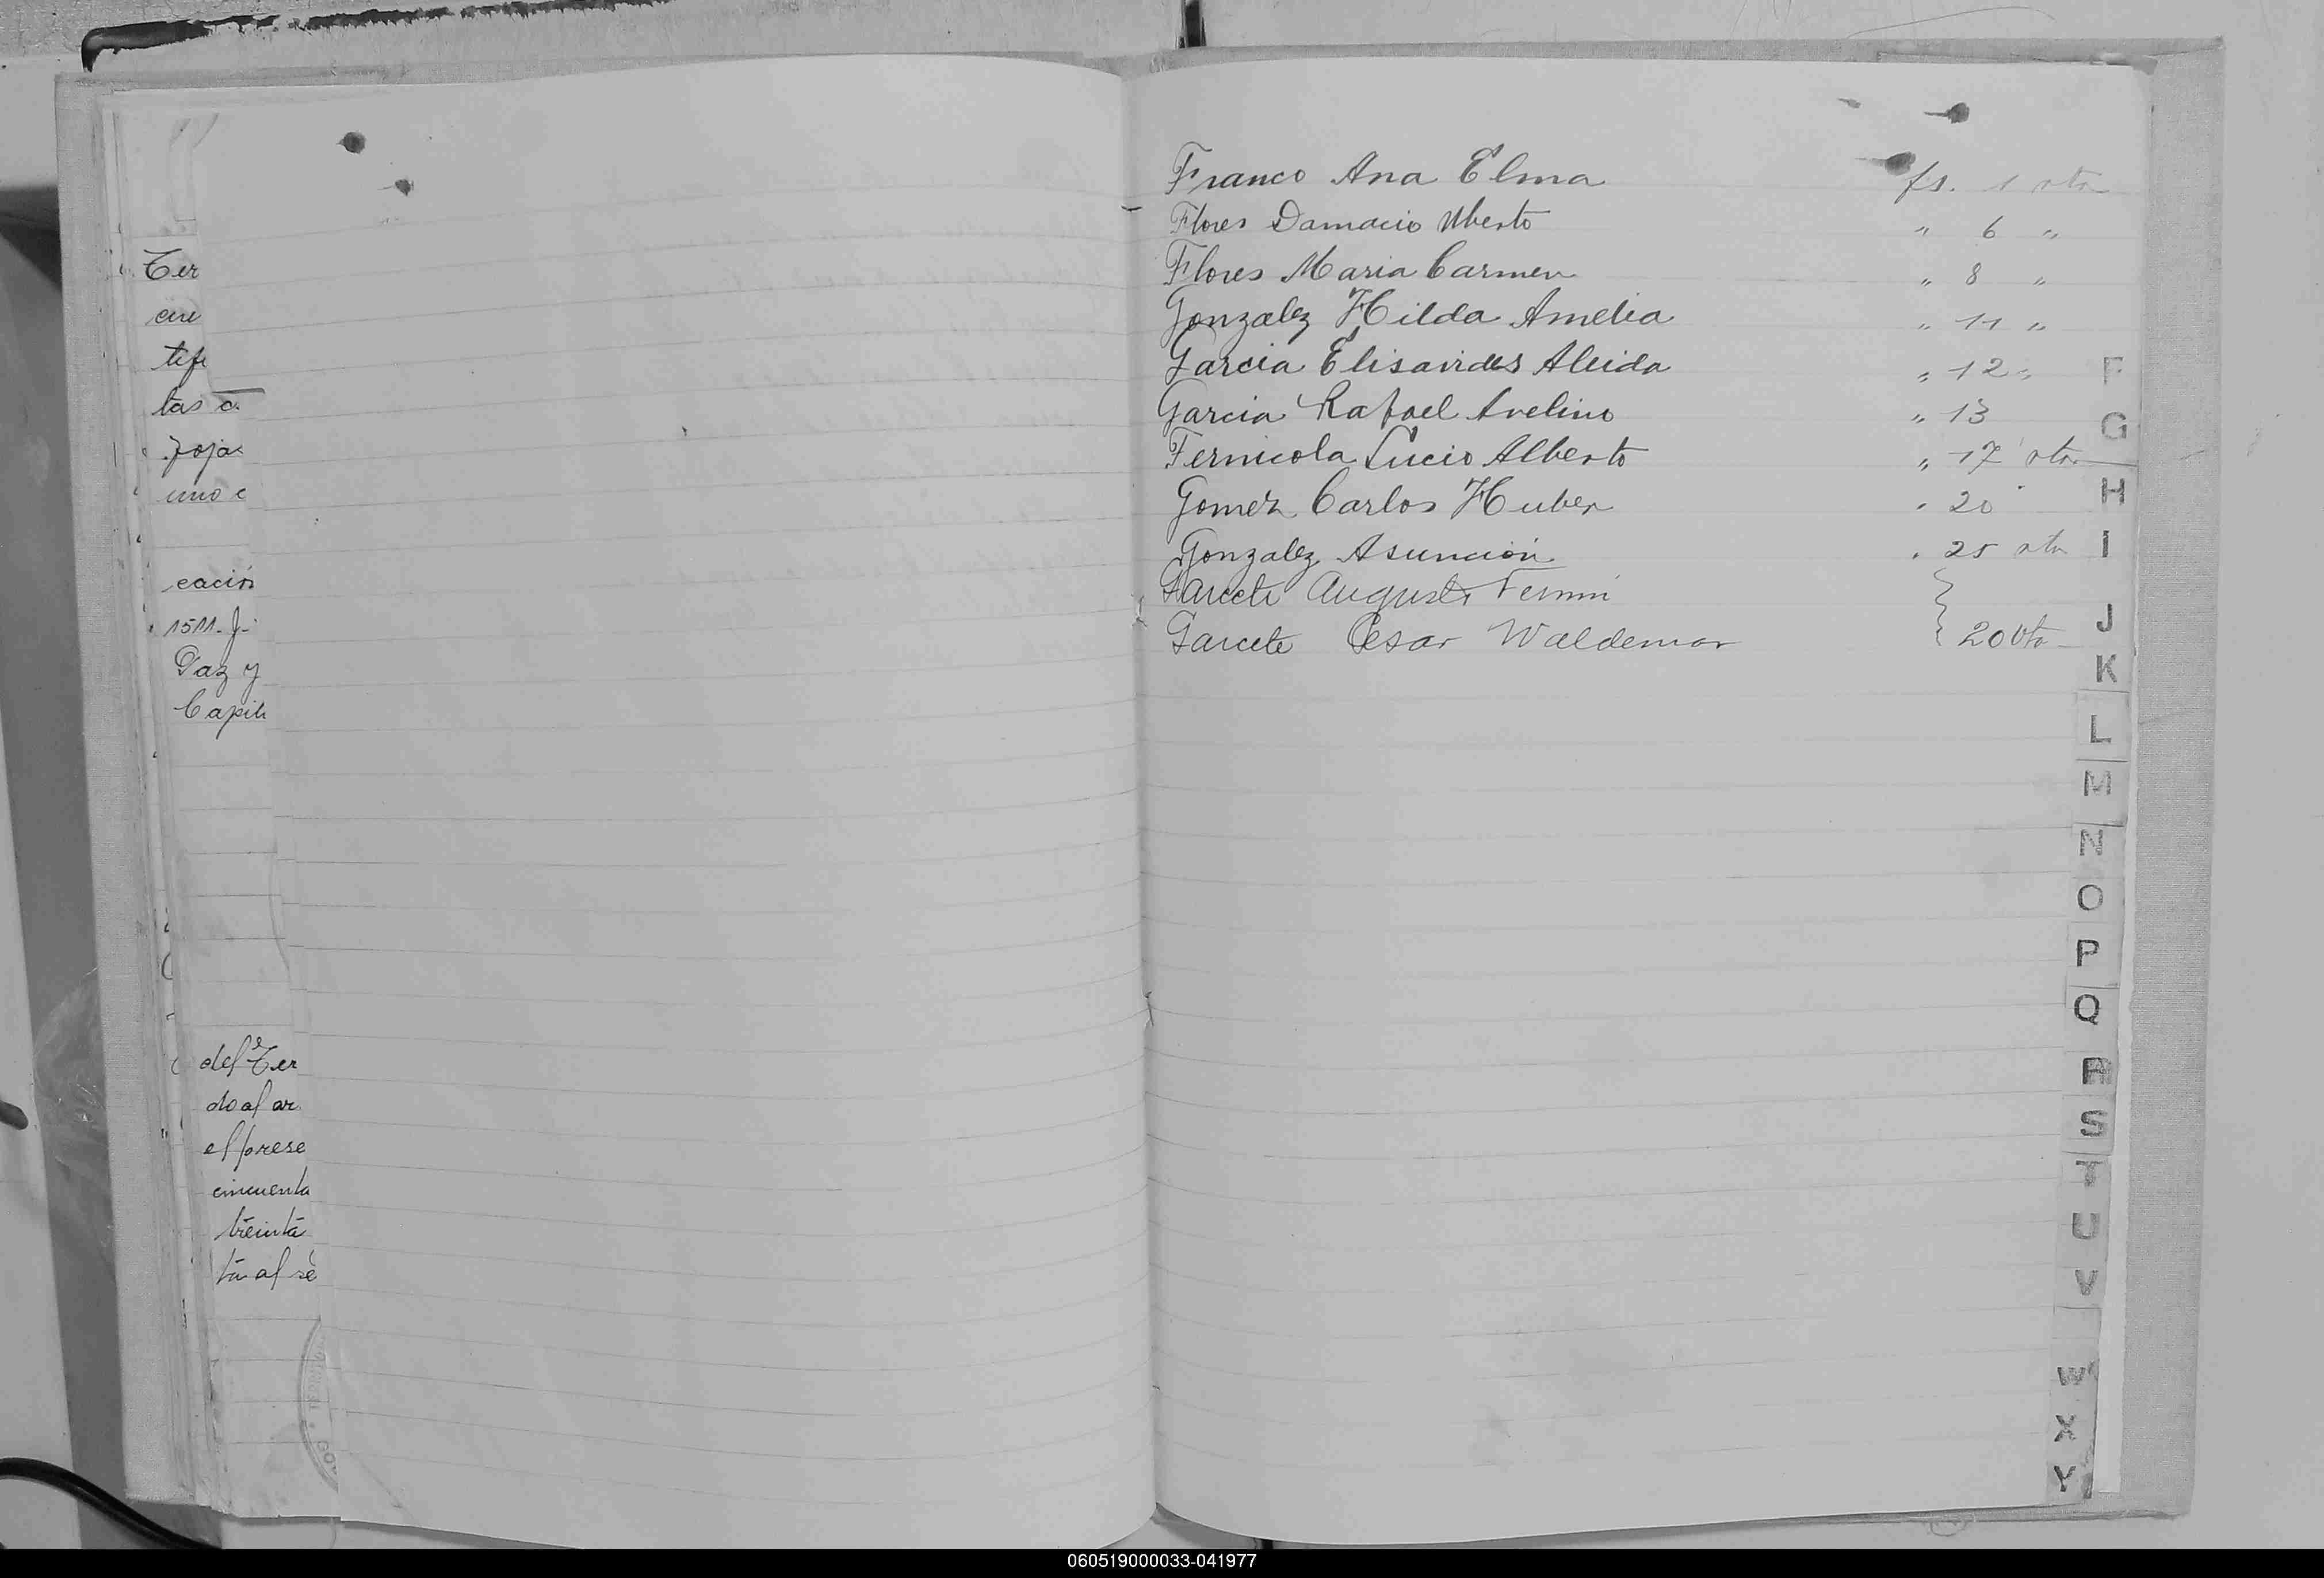 Ter
cue
tas a
foja
uno c
cación
1511. J.
Paz y
Capit
del Ter
do al ar
el prese
cincuenta
treinta
ta al se
Franco Ana Elma fs. 1 vta
Flores Damacio Uberto " 6 "
Flores Maria Carmen " 8 "
Gonzalez Hilda Amelia " 11 "
Garcia Elisavides Aleida " 12 "
Garcia Rafael Avelino " 13
Fernicola Lucio Alberto " 17 vta
Gomez Carlos Huber " 20
Gonzalez Asunción " 25 vta
Garcete Augusto Fermin
Garcete Cesar Waldemar } 20 vta
F
G
H
I
J
K
L
M
N
O
P
Q
R
S
T
U
V
W
X
Y
060519000033-041977